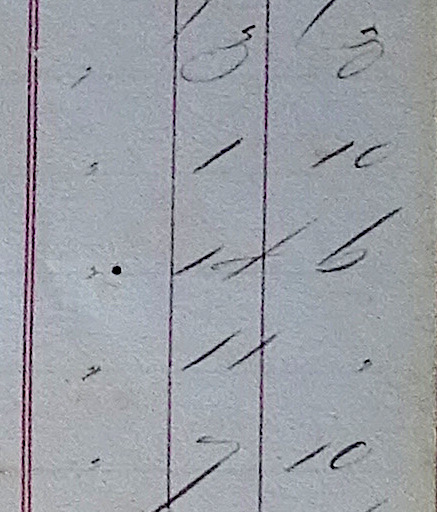 8 8
" 1 10
" 14 6
" 11 "
" 7 10